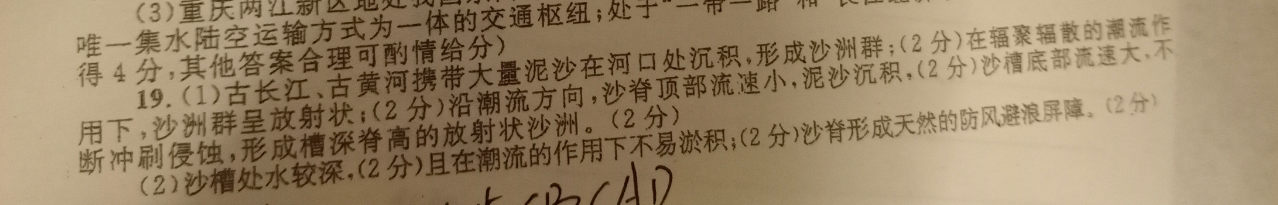 (3)重庆两江新区地处我国
唯一集水陆空运输方式为一体的交通枢纽;处于“一带一路”和“长江
得4分,其他答案合理可酌情给分)
19.(1)古长江、古黄河携带大量泥沙在河口处沉积,形成沙洲群;(2分)在辐聚辐散的潮流作
用下,沙洲群呈放射状;(2分)沿潮流方向,沙脊顶部流速小,泥沙沉积,(2分)沙槽底部流速大,不
断冲刷侵蚀,形成槽深脊高的放射状沙洲。(2分)
(2)沙槽处水较深,(2分)且在潮流的作用下不易淤积;(2分)沙脊形成天然的防风避浪屏障。(2分)